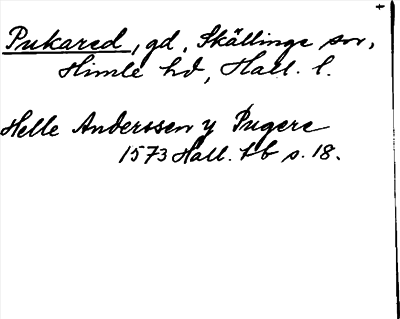 Pukared, gd, Skällinge sn,
Himle hd, Hall. l.
Helle Anderssen y Pugere
1573 Hall. tb s. 18.